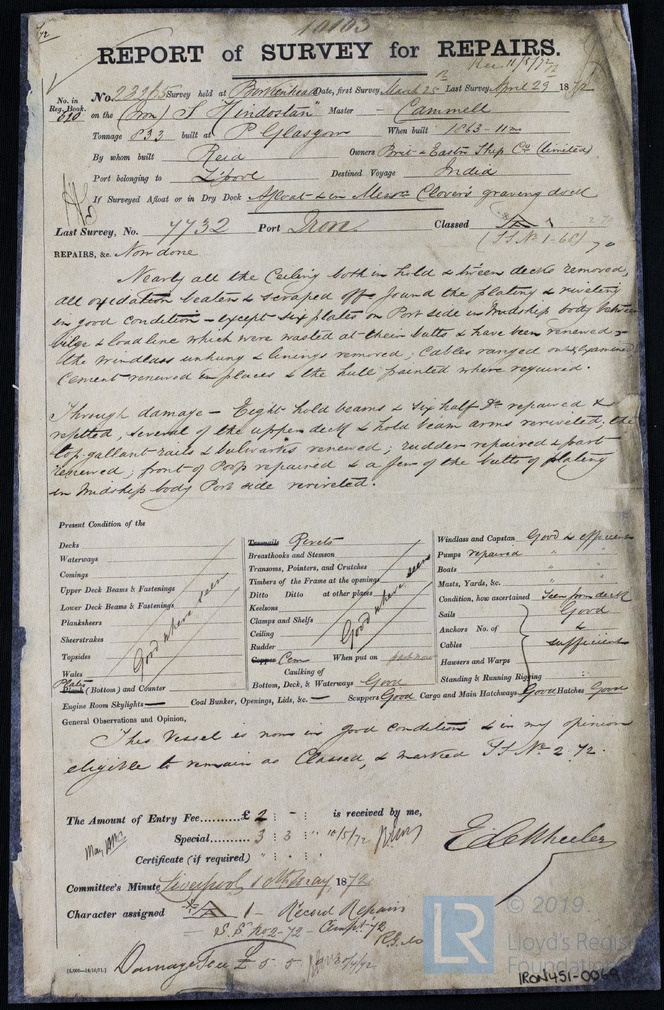 10103
REPORT of SURVEY for REPAIRS.
Rec 11/5/72
No. in Reg. Book. 510
No. 22265 Survey held at Birkenhead Date, first Survey March 25 Last Survey April 29 1872
on the (Iron) S "Hindostan" Master - Cammell
Tonnage 833 built at P Glasgow When built 1863-11mo
By whom built Reid Owners Brit & Eastern Ship Co (limited)
Port belonging to L'pool Destined Voyage India
If Surveyed Afloat or in Dry Dock Afloat & in Messrs Clover's graving dock
Last Survey, No. 7732 Port Iron Classed A 1
(S.S. No 1-68)
REPAIRS, &c. Now done
Nearly all the Ceiling both in hold & tween decks removed,
all oxidation beaten & scraped off found the plating & riveting
in good condition - except six plates on Port side in Midship body between
bilge & load line which were wasted at their butts & have been renewed -
the windlass unhung & linings removed; Cables ranged out & examined
Cement renewed in places & the hull painted where required.
Through damage - Eight hold beams & six half Do repaired &
refitted, several of the upper deck & hold beam arms reriveted, the
top gallant rails & bulwarks renewed; rudder repaired & part
renewed; front of Poop repaired & a few of the butts of plating
in Midship body Port side reriveted.
Present Condition of the
Decks
Waterways
Comings
Upper Deck Beams & Fastenings
Lower Deck Beams & Fastenings
Planksheers
Sheerstrakes
Topsides
Wales
Good where seen
Plates
Plank (Bottom) and Counter
Engine Room Skylights —
Treenails Rivets
Breasthooks and Stemson
Transoms, Pointers, and Crutches
Timbers of the Frame at the openings
Ditto Ditto at other places
Keelsons
Clamps and Shelfs
Ceiling
Rudder
Good where seen
Copper Cem When put on part now
Caulking of
Bottom, Deck, & Waterways Good
Coal Bunker, Openings, Lids, &c. —
Windlass and Capstan Good & efficient
Pumps repaired " "
Boats " "
Masts, Yards, &c. " "
Condition, how ascertained Seen from deck
Sails
Anchors No. of
Cables
Hawsers and Warps
Standing & Running Rigging
Good & sufficient
Scuppers Good Cargo and Main Hatchways Good Hatches Good
General Observations and Opinion,
This Vessel is now in good condition & in my opinion
eligible to remain as Classed, & marked S.S. No 2.72.
The Amount of Entry Fee..........£ 2 : - : is received by me,
Special.......... 3 3 " 10/5/72
Certificate (if required) " : " :
E C Wheeler
Committee's Minute Liverpool 10th May, 1872
Character assigned A 1 - Record Repairs
S.S. No 2-72
[5,000—14/10/71.]
Damage Fee £ 5 5
LR
© 2019
Lloyd's Register
Foundation
IRON451-0069